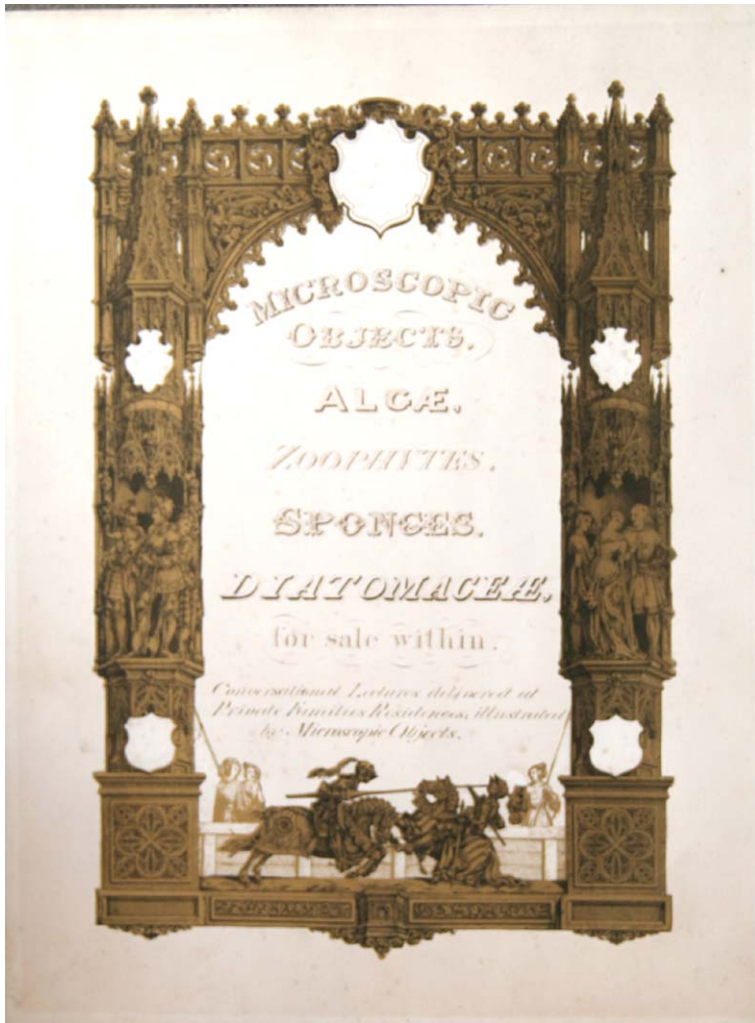 MICROSCOPIC
OBJECTS.
ALGÆ,
ZOOPHYTES.
SPONGES.
DYATOMACEÆ,
for sale within.
Conversational Lectures delivered at
Private Families Residences, illustrated
by Microscopic Objects.